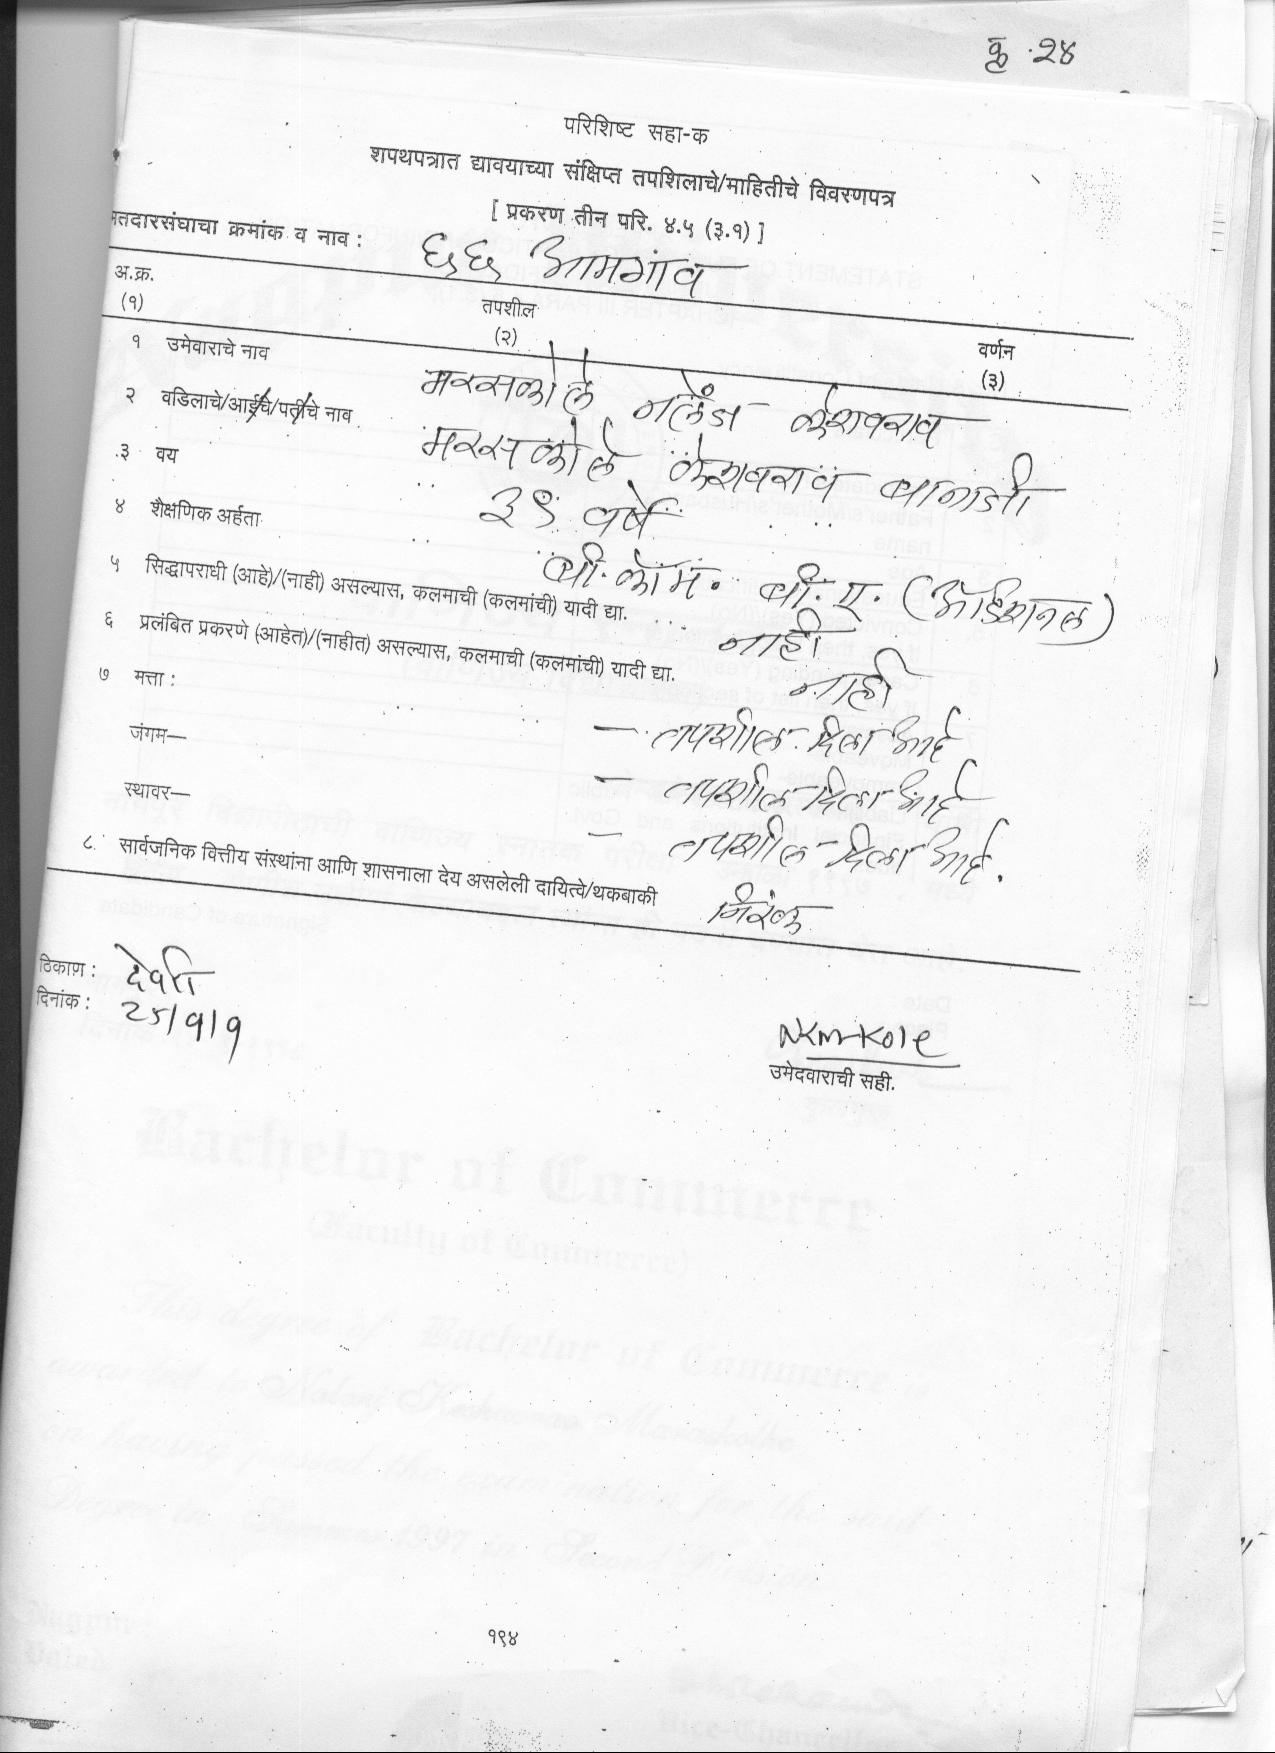 पृ. २४
परिशिष्ट सहा-क
शपथपत्रात द्यावयाच्या संक्षिप्त तपशिलाचे/माहितीचे विवरणपत्र
[ प्रकरण तीन परि. ४.५ (३.१) ]
मतदारसंघाचा क्रमांक व नाव : ६६ आमगांव
अ.क्र. तपशील वर्णन
(१) (२) (३)
१ उमेवाराचे नाव मरसकोले केशवराव
२ वडिलाचे/आईचे/पतीचे नाव मरसकोले केशवराव
३ वय ३९ वर्षे
४ शैक्षणिक अर्हता बी. कॉम. बी. ए. (अॅडिशनल)
५ सिद्धापराधी (आहे)/(नाही) असल्यास, कलमाची (कलमांची) यादी द्या. नाही
६ प्रलंबित प्रकरणे (आहेत)/(नाहीत) असल्यास, कलमाची (कलमांची) यादी द्या. नाही
७ मत्ता : — तपशील दिला आहे
जंगम— — तपशील दिला आहे
स्थावर— — तपशील दिला आहे.
८ सार्वजनिक वित्तीय संस्थांना आणि शासनाला देय असलेली दायित्वे/थकबाकी निरंक
ठिकाण : देवरी
दिनांक :
उमेदवाराची सही.
Bachelor of Commerce
(Faculty of Commerce)
This degree of Bachelor of Commerce is
awarded to Keshaorao Maraskolhe
on having passed the examination for the said
Degree in Summer 1997 in Second Division
१९४
Nagpur :
Dated
Vice-Chancellor